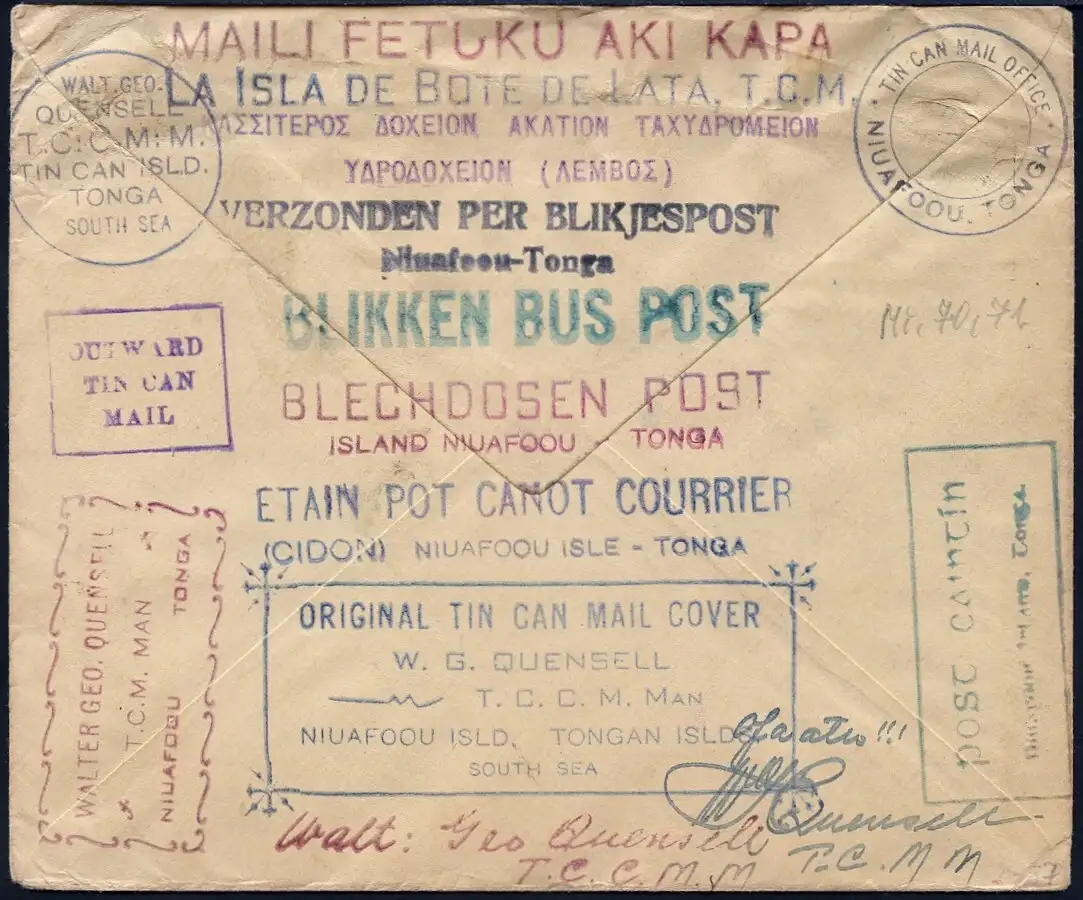 MAILI FETUKU AKI KAPA
LA ISLA DE BOTE DE LATA, T.C.M.
ΚΑΣΣΙΤΕΡΟΣ ΔΟΧΕΙΟΝ ΑΚΑΤΙΟΝ ΤΑΧΥΔΡΟΜΕΙΟΝ
ΥΔΡΟΔΟΧΕΙΟΝ (ΛΕΜΒΟΣ)
VERZONDEN PER BLIKJESPOST
Niuafoou-Tonga
BLIKKEN BUS POST
BLECHDOSEN POST
ISLAND NIUAFOOU - TONGA
ETAIN POT CANOT COURRIER
(CIDON) NIUAFOOU ISLE - TONGA
WALT. GEO.
QUENSELL
T.C.C.M.M.
TIN CAN ISLD.
TONGA
SOUTH SEA
TIN CAN MAIL OFFICE
NIUAFOOU. TONGA
OUTWARD
TIN CAN
MAIL
Mi. 70, 71
WALTER GEO. QUENSELL
T.C.M. MAN
NIUAFOOU TONGA
post canntín
Tonga
ORIGINAL TIN CAN MAIL COVER
W. G. QUENSELL
T. C. C. M. MAN
NIUAFOOU ISLD. TONGAN ISLDS
SOUTH SEA
Quensell
T.C.M M
Walt: Geo Quensell
T.C.C.M.M